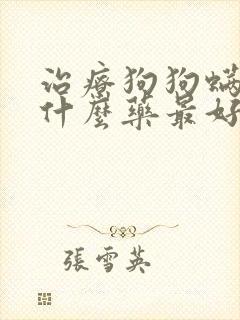 治療狗狗螨
什麼藥最好
張雪英